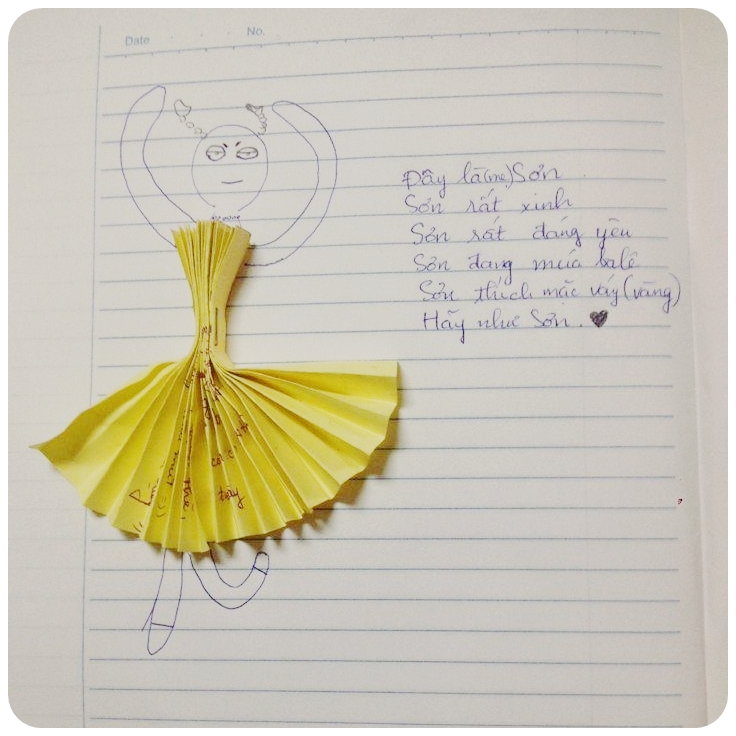 Date No.
Đây là (mẹ) Sơn
Sơn rất xinh
Sơn rất đáng yêu
Sơn đang múa balê
Sơn thích mặc váy (vàng)
Hãy như Sơn. ♥
đây